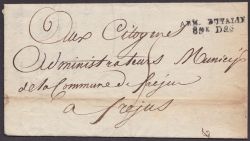 ARM. D'ITALIE
8ME DON
Aux Citoyens
Administrateurs Municip
de la Commune de frejus
a frejus